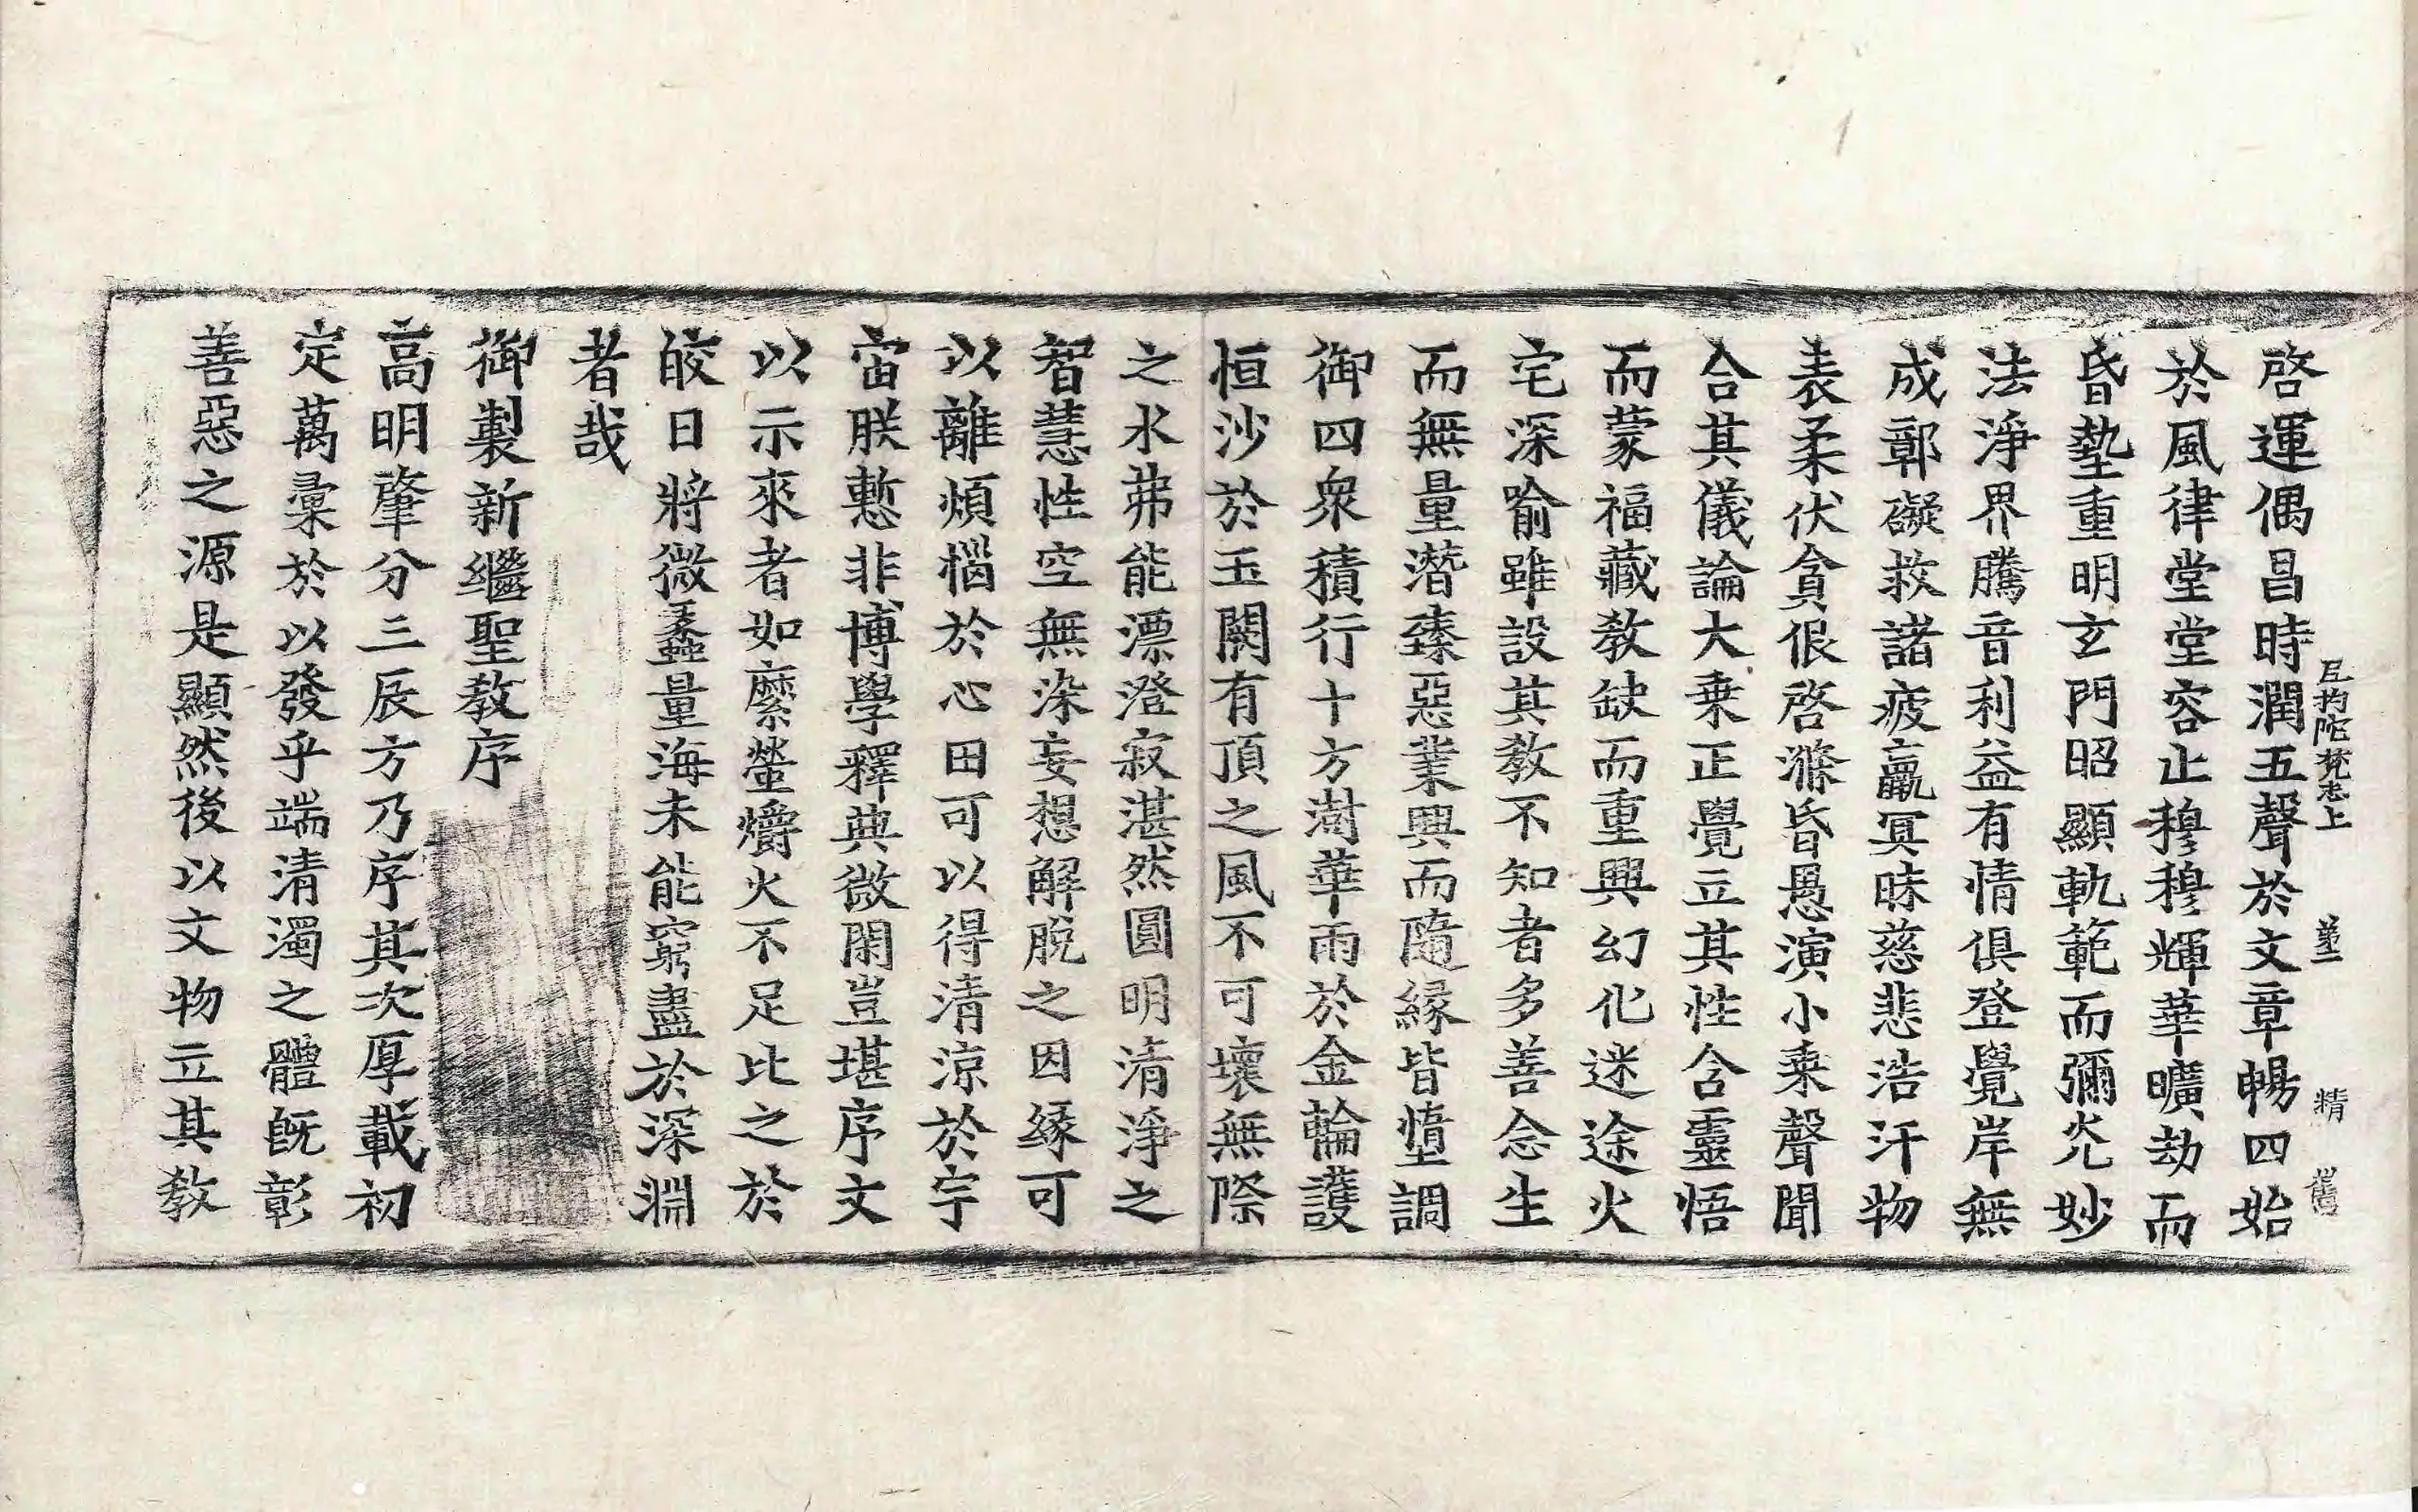 尼拘陀梵志上　　　　精
啓運偶昌時潤五聲於文章暢四始
於風律堂堂容止穆穆輝華曠劫而
昏墊重明玄門昭顯軌範而彌光妙
法淨界騰音利益有情俱登覺岸無
成鄣礙救諸疲羸冥昧慈悲浩汗物
表柔伏貪佷啓滌昏愚演小乗聲聞
合其儀論大乗正覺立其性含靈悟
而蒙福藏教缺而重興幻化迷途火
宅深喻雖設其教不知者多善念生
而無量潛臻惡業興而隨縁皆墮調
御四衆積行十方澍華雨於金輪護
恒沙於玉闕有頂之風不可壞無際
之水弗能漂澄寂湛然圓明清淨之
智慧性空無染妄想解脱之因縁可
以離煩惱於心田可以得清涼於宇
宙朕慙非博學釋典微閑豈堪序文
以示來者如縻螢爝火不足比之於
皎日將微蠡量海未能窮盡於深淵
者哉
御製新繼聖教序
高明肇分三辰方乃序其次厚載初
定萬彙於以發乎端清濁之體旣彰
善惡之源是顯然後以文物立其教